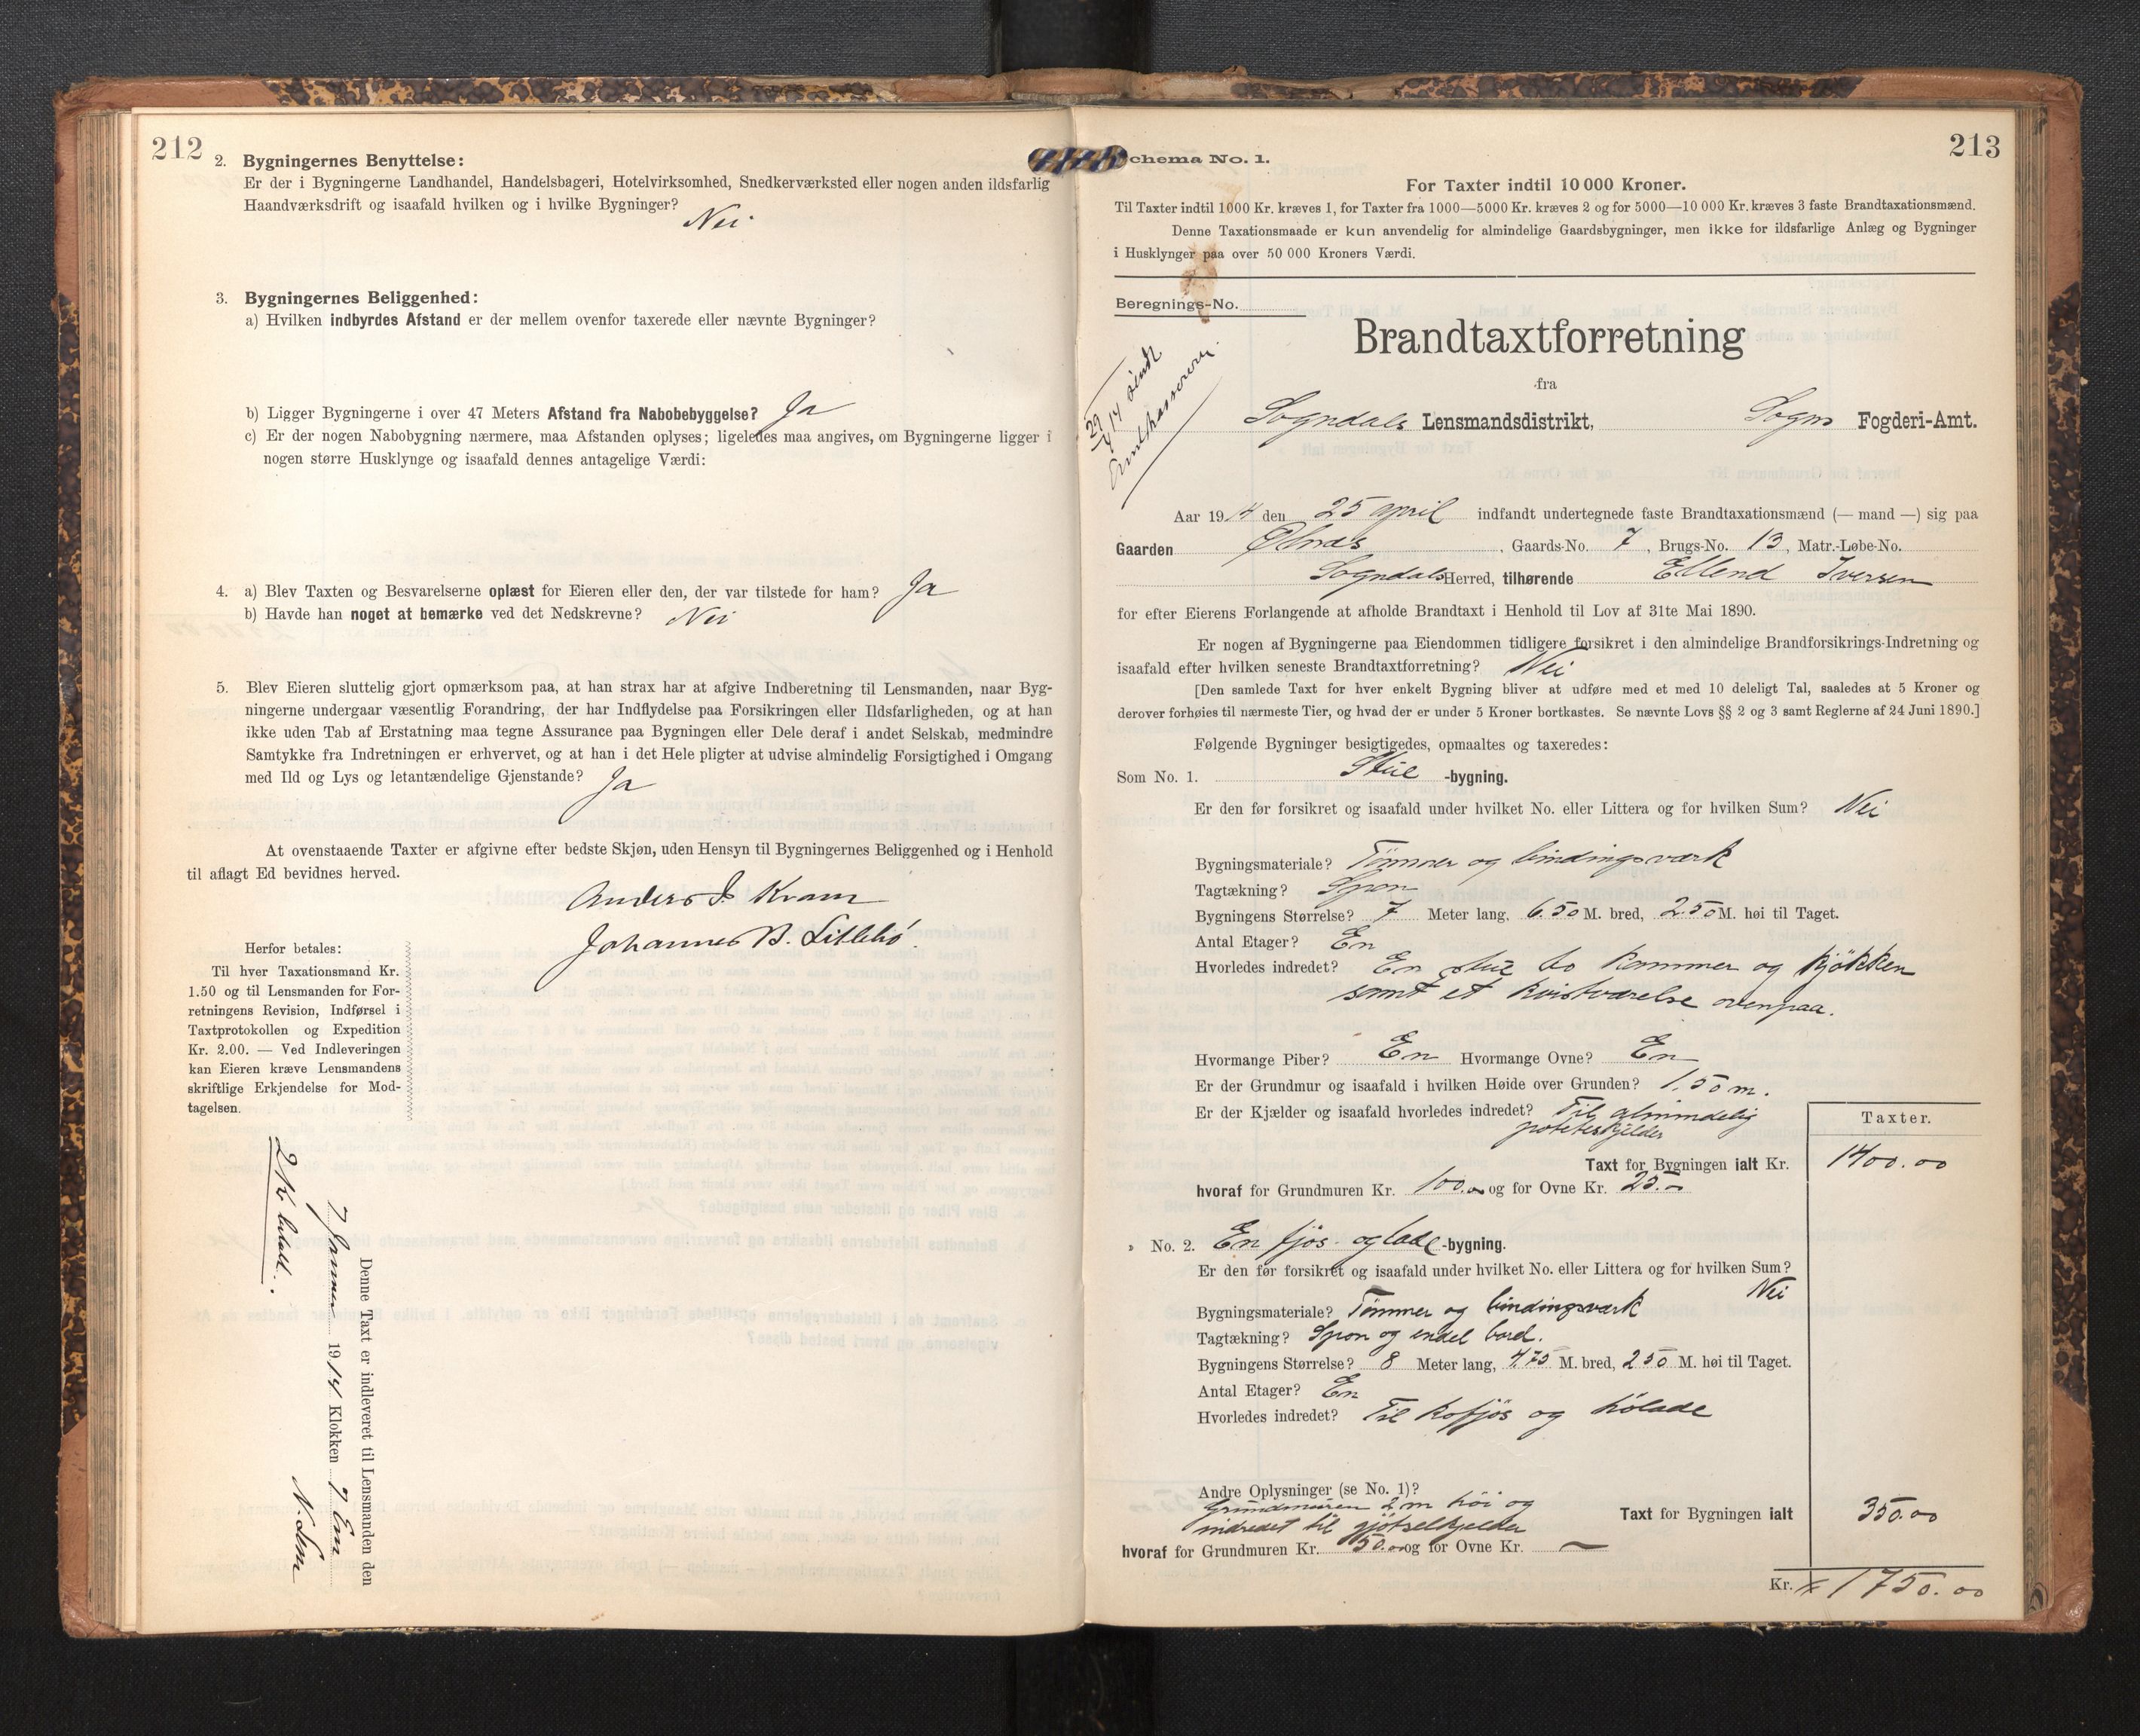 212
2. Bygningernes Benyttelse:
Er der i Bygningerne Landhandel, Handelsbageri, Hotelvirksomhed, Snedkerværksted eller nogen anden ildsfarlig
Haandværksdrift og isaafald hvilken og i hvilke Bygninger? Nei
3. Bygningernes Beliggenhed:
a) Hvilken indbyrdes Afstand er der mellem ovenfor taxerede eller nævnte Bygninger?
b) Ligger Bygningerne i over 47 Meters Afstand fra Nabobebyggelse? Ja
c) Er der nogen Nabobygning nærmere, maa Afstanden oplyses; ligeledes maa angives, om Bygningerne ligger i
nogen større Husklynge og isaafald dennes antagelige Værdi:
4. a) Blev Taxten og Besvarelserne oplæst for Eieren eller den, der var tilstede for ham? Ja
b) Havde han noget at bemærke ved det Nedskrevne? Nei
5. Blev Eieren sluttelig gjort opmærksom paa, at han strax har at afgive Indberetning til Lensmanden, naar Byg-
ningerne undergaar væsentlig Forandring, der har Indflydelse paa Forsikringen eller Ildsfarligheden, og at han
ikke uden Tab af Erstatning maa tegne Assurance paa Bygningen eller Dele deraf i andet Selskab, medmindre
Samtykke fra Indretningen er erhvervet, og at han i det Hele pligter at udvise almindelig Forsigtighed i Omgang
med Ild og Lys og letantændelige Gjenstande? Ja
At ovenstaaende Taxter er afgivne efter bedste Skjøn, uden Hensyn til Bygningernes Beliggenhed og i Henhold
til aflagt Ed bevidnes herved.
Anders J. Kvam
Johannes B. Litlebø.
Herfor betales:
Til hver Taxationsmand Kr.
1.50 og til Lensmanden for For-
retningens Revision, Indførsel i
Taxtprotokollen og Expedition
Kr. 2.00. — Ved Indleveringen
kan Eieren kræve Lensmandens
skriftlige Erkjendelse for Mod-
tagelsen.
Denne Taxt er indleveret til Lensmanden den
7 Januar 1914 Klokken 7 Em
N. Lem
2 Kr betalt.
213
Schema No. 1.
For Taxter indtil 10 000 Kroner.
Til Taxter indtil 1000 Kr. kræves 1, for Taxter fra 1000—5000 Kr. kræves 2 og for 5000—10 000 Kr. kræves 3 faste Brandtaxationsmænd.
Denne Taxationsmaade er kun anvendelig for almindelige Gaardsbygninger, men ikke for ildsfarlige Anlæg og Bygninger
i Husklynger paa over 50 000 Kroners Værdi.
Beregnings-No.
29/4 14 sendt
Brandtaxtforretning
fra
Sogndals Lensmandsdistrikt, Sogns Fogderi-Amt.
Aar 1914 den 25 april indfandt undertegnede faste Brandtaxationsmænd (— mand —) sig paa
Gaarden Ølnæs, Gaards-No. 7, Brugs-No. 13, Matr.-Løbe-No.
Sogndals Herred, tilhørende Ellend Iversen
for efter Eierens Forlangende at afholde Brandtaxt i Henhold til Lov af 31te Mai 1890.
Er nogen af Bygningerne paa Eiendommen tidligere forsikret i den almindelige Brandforsikrings-Indretning og
isaafald efter hvilken seneste Brandtaxtforretning? Nei
[Den samlede Taxt for hver enkelt Bygning bliver at udføre med et med 10 deleligt Tal, saaledes at 5 Kroner og
derover forhøies til nærmeste Tier, og hvad der er under 5 Kroner bortkastes. Se nævnte Lovs §§ 2 og 3 samt Reglerne af 24 Juni 1890.]
Følgende Bygninger besigtigedes, opmaaltes og taxeredes:
Som No. 1. Stue -bygning.
Er den før forsikret og isaafald under hvilket No. eller Littera og for hvilken Sum? Nei
Bygningsmateriale? Tømmer og bindingsværk
Tagtækning? Spon
Bygningens Størrelse? 7 Meter lang, 6.50 M. bred, 2.50 M. høi til Taget.
Antal Etager? En
Hvorledes indredet? En stue to kammer og kjøkken
samt et kvistværelse ovenpaa.
Hvormange Piber? En Hvormange Ovne? En
Er der Grundmur og isaafald i hvilken Høide over Grunden? 1.50 m.
Er der Kjælder og isaafald hvorledes indredet? Til almindelig
poteteskjelder
Taxter.
Taxt for Bygningen ialt Kr. 1400.00
hvoraf for Grundmuren Kr. 100.00 og for Ovne Kr. 25.—
» No. 2. En fjøs- og lade -bygning.
Er den før forsikret og isaafald under hvilket No. eller Littera og for hvilken Sum?
Nei
Bygningsmateriale? Tømmer og bindingsværk
Tagtækning? Spon og endel bord.
Bygningens Størrelse? 8 Meter lang, 4.75 M. bred, 2.50 M. høi til Taget.
Antal Etager? En
Hvorledes indredet? Til kofjøs og hølade
Andre Oplysninger (se No. 1)?
Grundmuren 2 m høi og
indredet til gjødselkjelder
Taxt for Bygningen ialt 350.00
hvoraf for Grundmuren Kr. 50.00 og for Ovne Kr. —
Kr. 1750.00